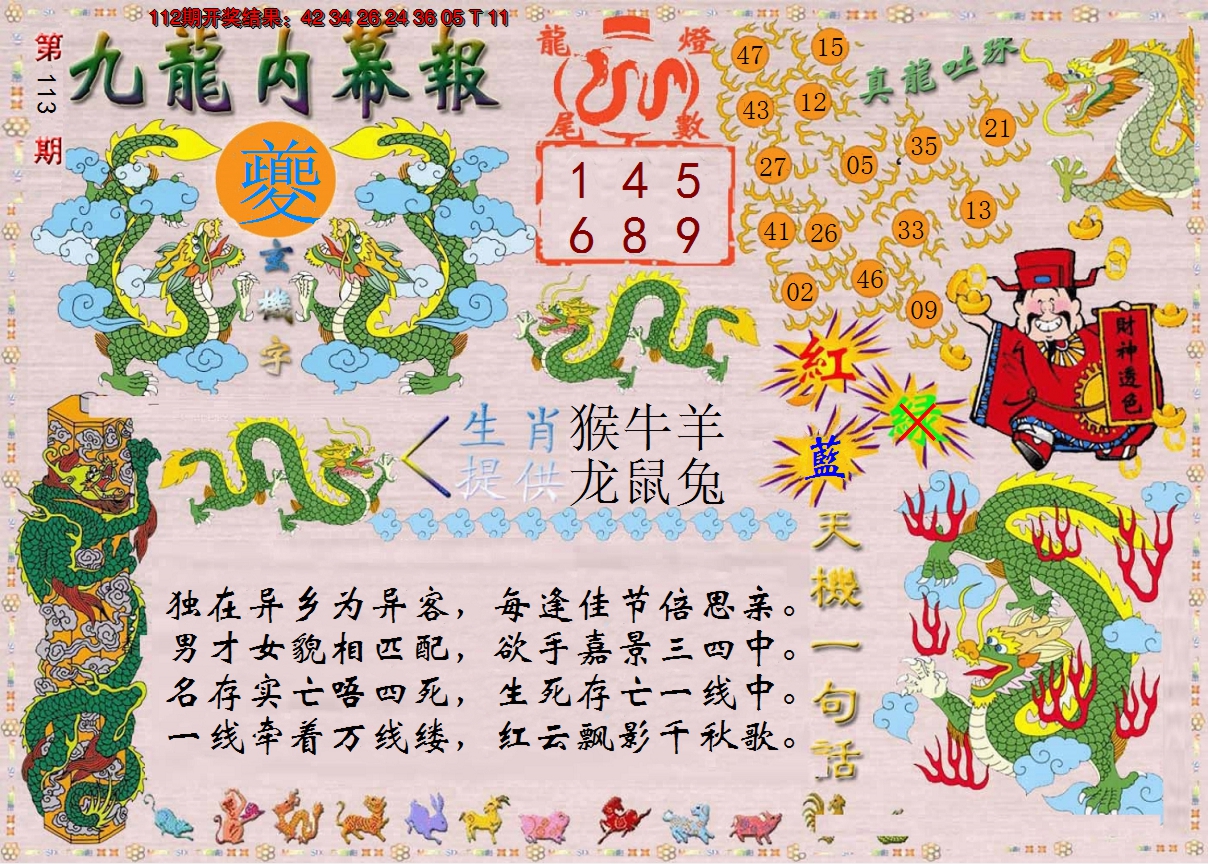 112期开奖结果：42 34 26 24 36 05 T 11
第113期
九龍内幕報
夔
玄機字
龍燈
尾數
1 4 5
6 8 9
真龍吐珠
47
15
43
12
27
05
35
21
41
26
33
13
02
46
09
紅
绿
藍
財神透色
生肖提供
猴牛羊
龙鼠兔
天機一句話
独在异乡为异客，每逢佳节倍思亲。
男才女貌相匹配，欲手嘉景三四中。
名存实亡唔四死，生死存亡一线中。
一线牵着万线缕，红云飘影千秋歌。